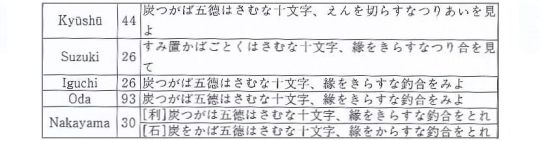 Kyūshū 44 炭つがば五徳はさむな十文字、えんを切らすなつりあいを見
よ
Suzuki 26 すみ置かばごとくはさむな十文字、縁をきらすなつり合を見
て
Iguchi 26 炭つがば五徳はさむな十文字、縁をきらすな釣合をみよ
Oda 93 炭つがば五徳はさむな十文字、縁をきらすな釣合をみよ
Nakayama 30 [利]炭つがは五徳はさむな十文字、縁をきらすな釣合をとれ
[石]炭をかば五徳はさむな十文字、縁をからすな釣合をとれ